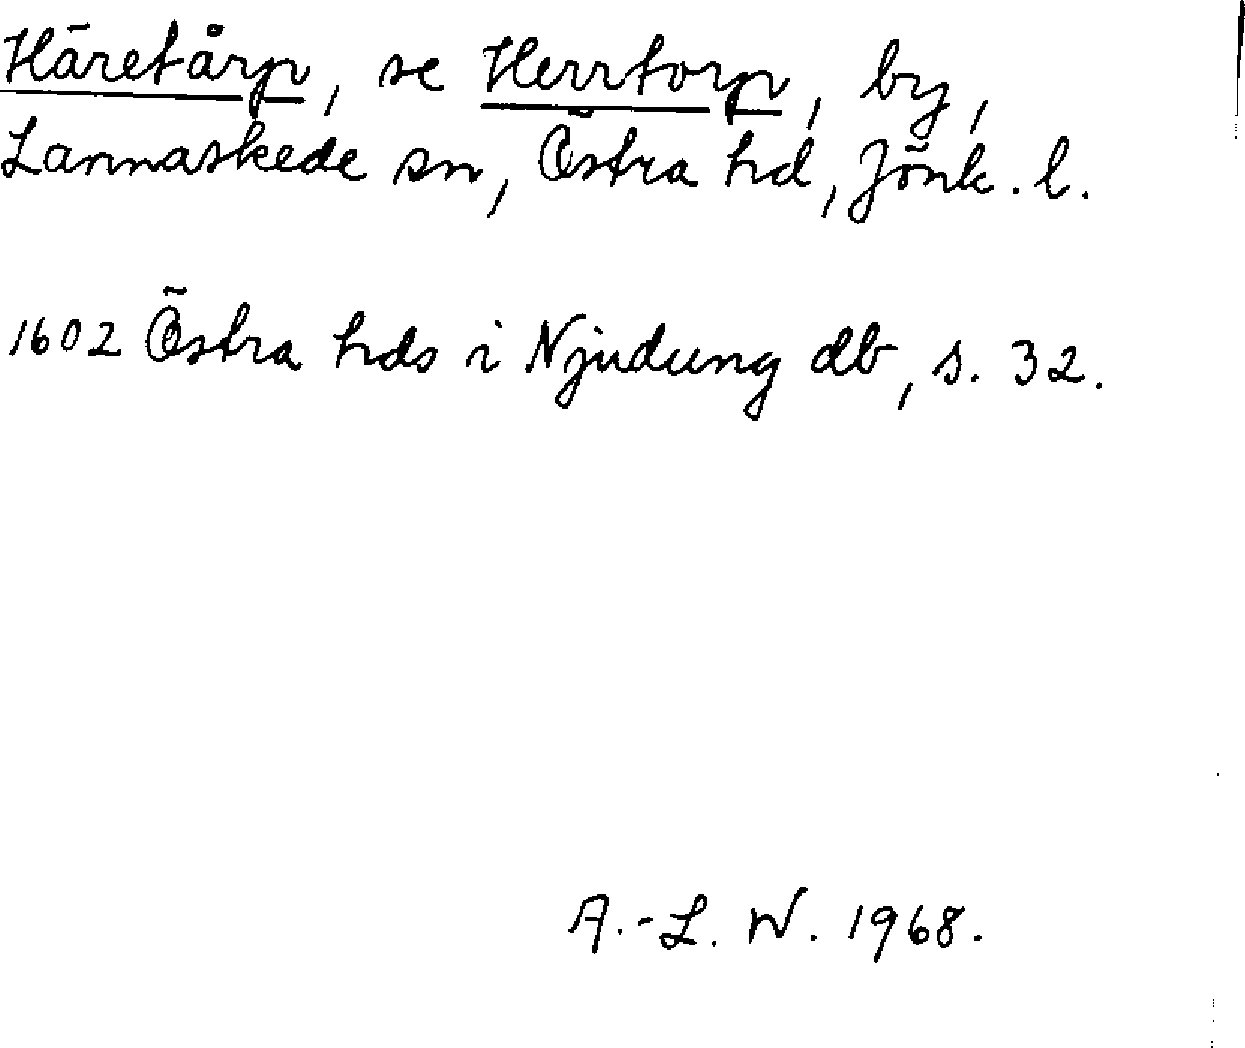 Häretårp, se Herrtorp, by,
Lannaskede sn, Östra hd, Jönk. l.
1602 Östra hds i Njudung db, s. 32.
A.-L. W. 1968.